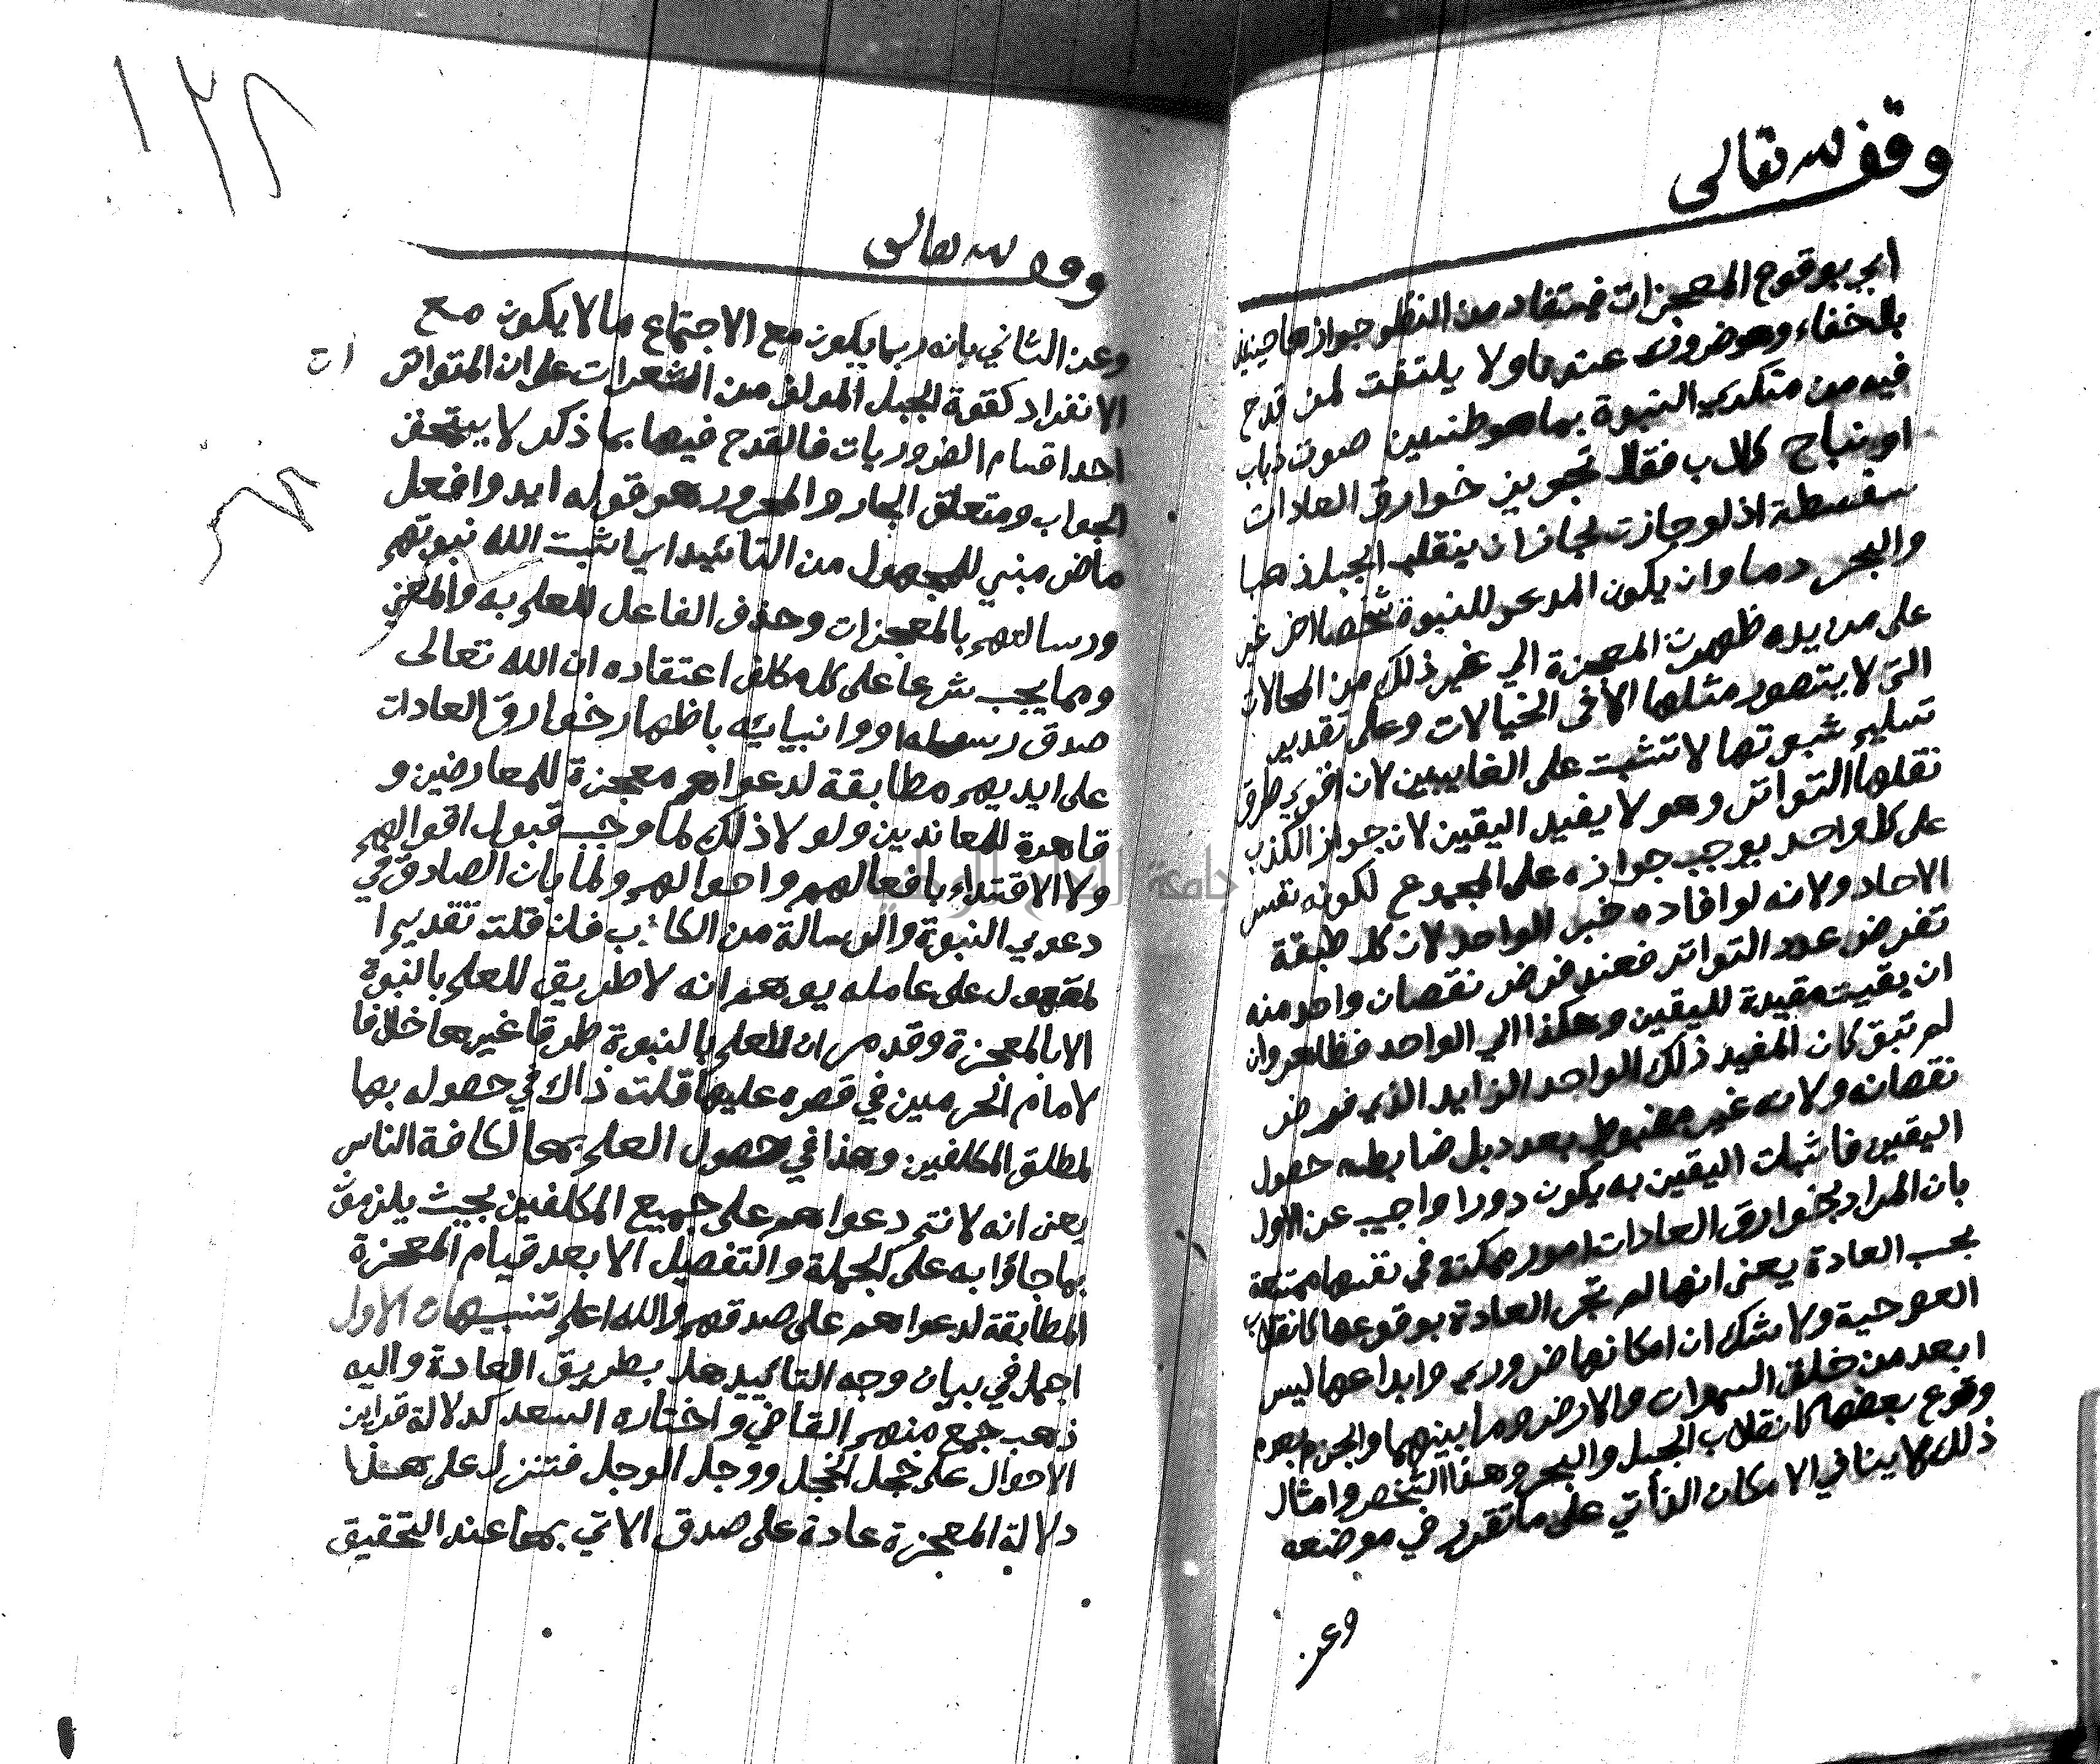 وقف لله تعالى
اي بوقوع المعجزات فيستفاد من النظر جوازها حينئذ
بالخفاء وهو ضروري عندنا ولا يلتفت لمن قدح
فيه من منكري النبوة بما هو طنين صوت ذباب
او نباح كلاب فقال تجويز خوارق العادات
سفسطة اذ لو جازت لجاز ان ينقلب الجبل ذهبا
والبحر دما وان يكون المدعي للنبوة شخصا اخر غير
على من يده ظهرت المعجزة الي غير ذلك من المحالات
التي لا يتصور مثلها الا في الخيالات وعلى تقدير
تسليم ثبوتها لا تثبت على الغايبين لان اقوي طرق
نقلها التواتر وهو لا يفيد اليقين لان جواز الكذب
على كل واحد يوجب جوازه على المجموع لكونه نفس
الاحاد ولانه لو افاده خبر الواحد لان كل طبقة
تفرض عدد التواتر فعند فرض نقصان واحد منه
ان بقيت مفيدة لليقين وهكذا الي الواحد فظاهر وان
لم تبق كان المفيد ذلك الواحد الزايد الذي فرض
نقصانه ولانه غير مضبوط بعدد بل ضابطه حصول
اليقين فاثبات اليقين به يكون دورا واجيب عن الاول
بان المراد بخوارق العادات امور ممكنة في نفسها ممتنعة
بحسب العادة يعني انها لم تجر العادة بوقوعها كانقلاب
العصى حية ولا شك ان امكانها ضروري وابداعها ليس
ابعد من خلق السموات والارض وما بينهما والجزم بعدم
وقوع بعضها كانقلاب الجبل والبحر وهذا الشخص وامثال
ذلك لا ينافي الامكان الذاتي على ما تقرر في موضعه
وعن
١٢٨
وقف لله تعالى
وعن الثاني بانه ربما يكون مع الاجتماع ما لا يكون مع
الانفراد كقوة الحبل المولف من الشعرات على ان المتواتر
احد اقسام الضروريات فالقدح فيها بما ذكر لا يستحق
الجواب ومتعلق الجار والمجرور هو قوله ايدوا فعل
ماض مبني للمجهول من التائيد اي اثبت الله نبوتهم
ورسالتهم بالمعجزات وحذف الفاعل للعلم به والمعني
ومما يجب شرعا على كل مكلف اعتقاده ان الله تعالى
صدق رسله او وانبيائه باظهار خوارق العادات
على ايديهم مطابقة لدعواهم معجزة للمعارضين و
قاهرة للمعاندين ولولا ذلك لما وجب قبول اقوالهم
ولا الاقتداء بافعالهم واحوالهم ولما بان الصادق في
دعوي النبوة والرسالة من الكاذب فان قلت تقديم ا
لمعمول على عامله يوهم انه لا طريق للعلم بالنبوة
الا بالمعجزة وقد مر ان للعلم بالنبوة طرقا غيرها خلافا
لامام الحرمين في قصره عليها قلت ذاك في حصوله بها
لمطلق المكلفين وهذا في حصول العلم بها لكافة الناس
يعني انه لا تتم دعواهم على جميع المكلفين بحيث يلزمهم
بما جاؤا به على الجملة والتفصيل الا بعد قيام المعجزة
المطابقة لدعواهم على صدقهم والله اعلم تنبيهات الاول
اجمل في بيان وجه التاييد هل بطريق العادة واليه
ذهب جمع منهم القاضي واختاره السعد كدلالة قراين
الاحوال على خجل الخجل ووجل الوجل فتنزل على هذا
دلالة المعجزة عادة على صدق الاتي بها عند التحقيق